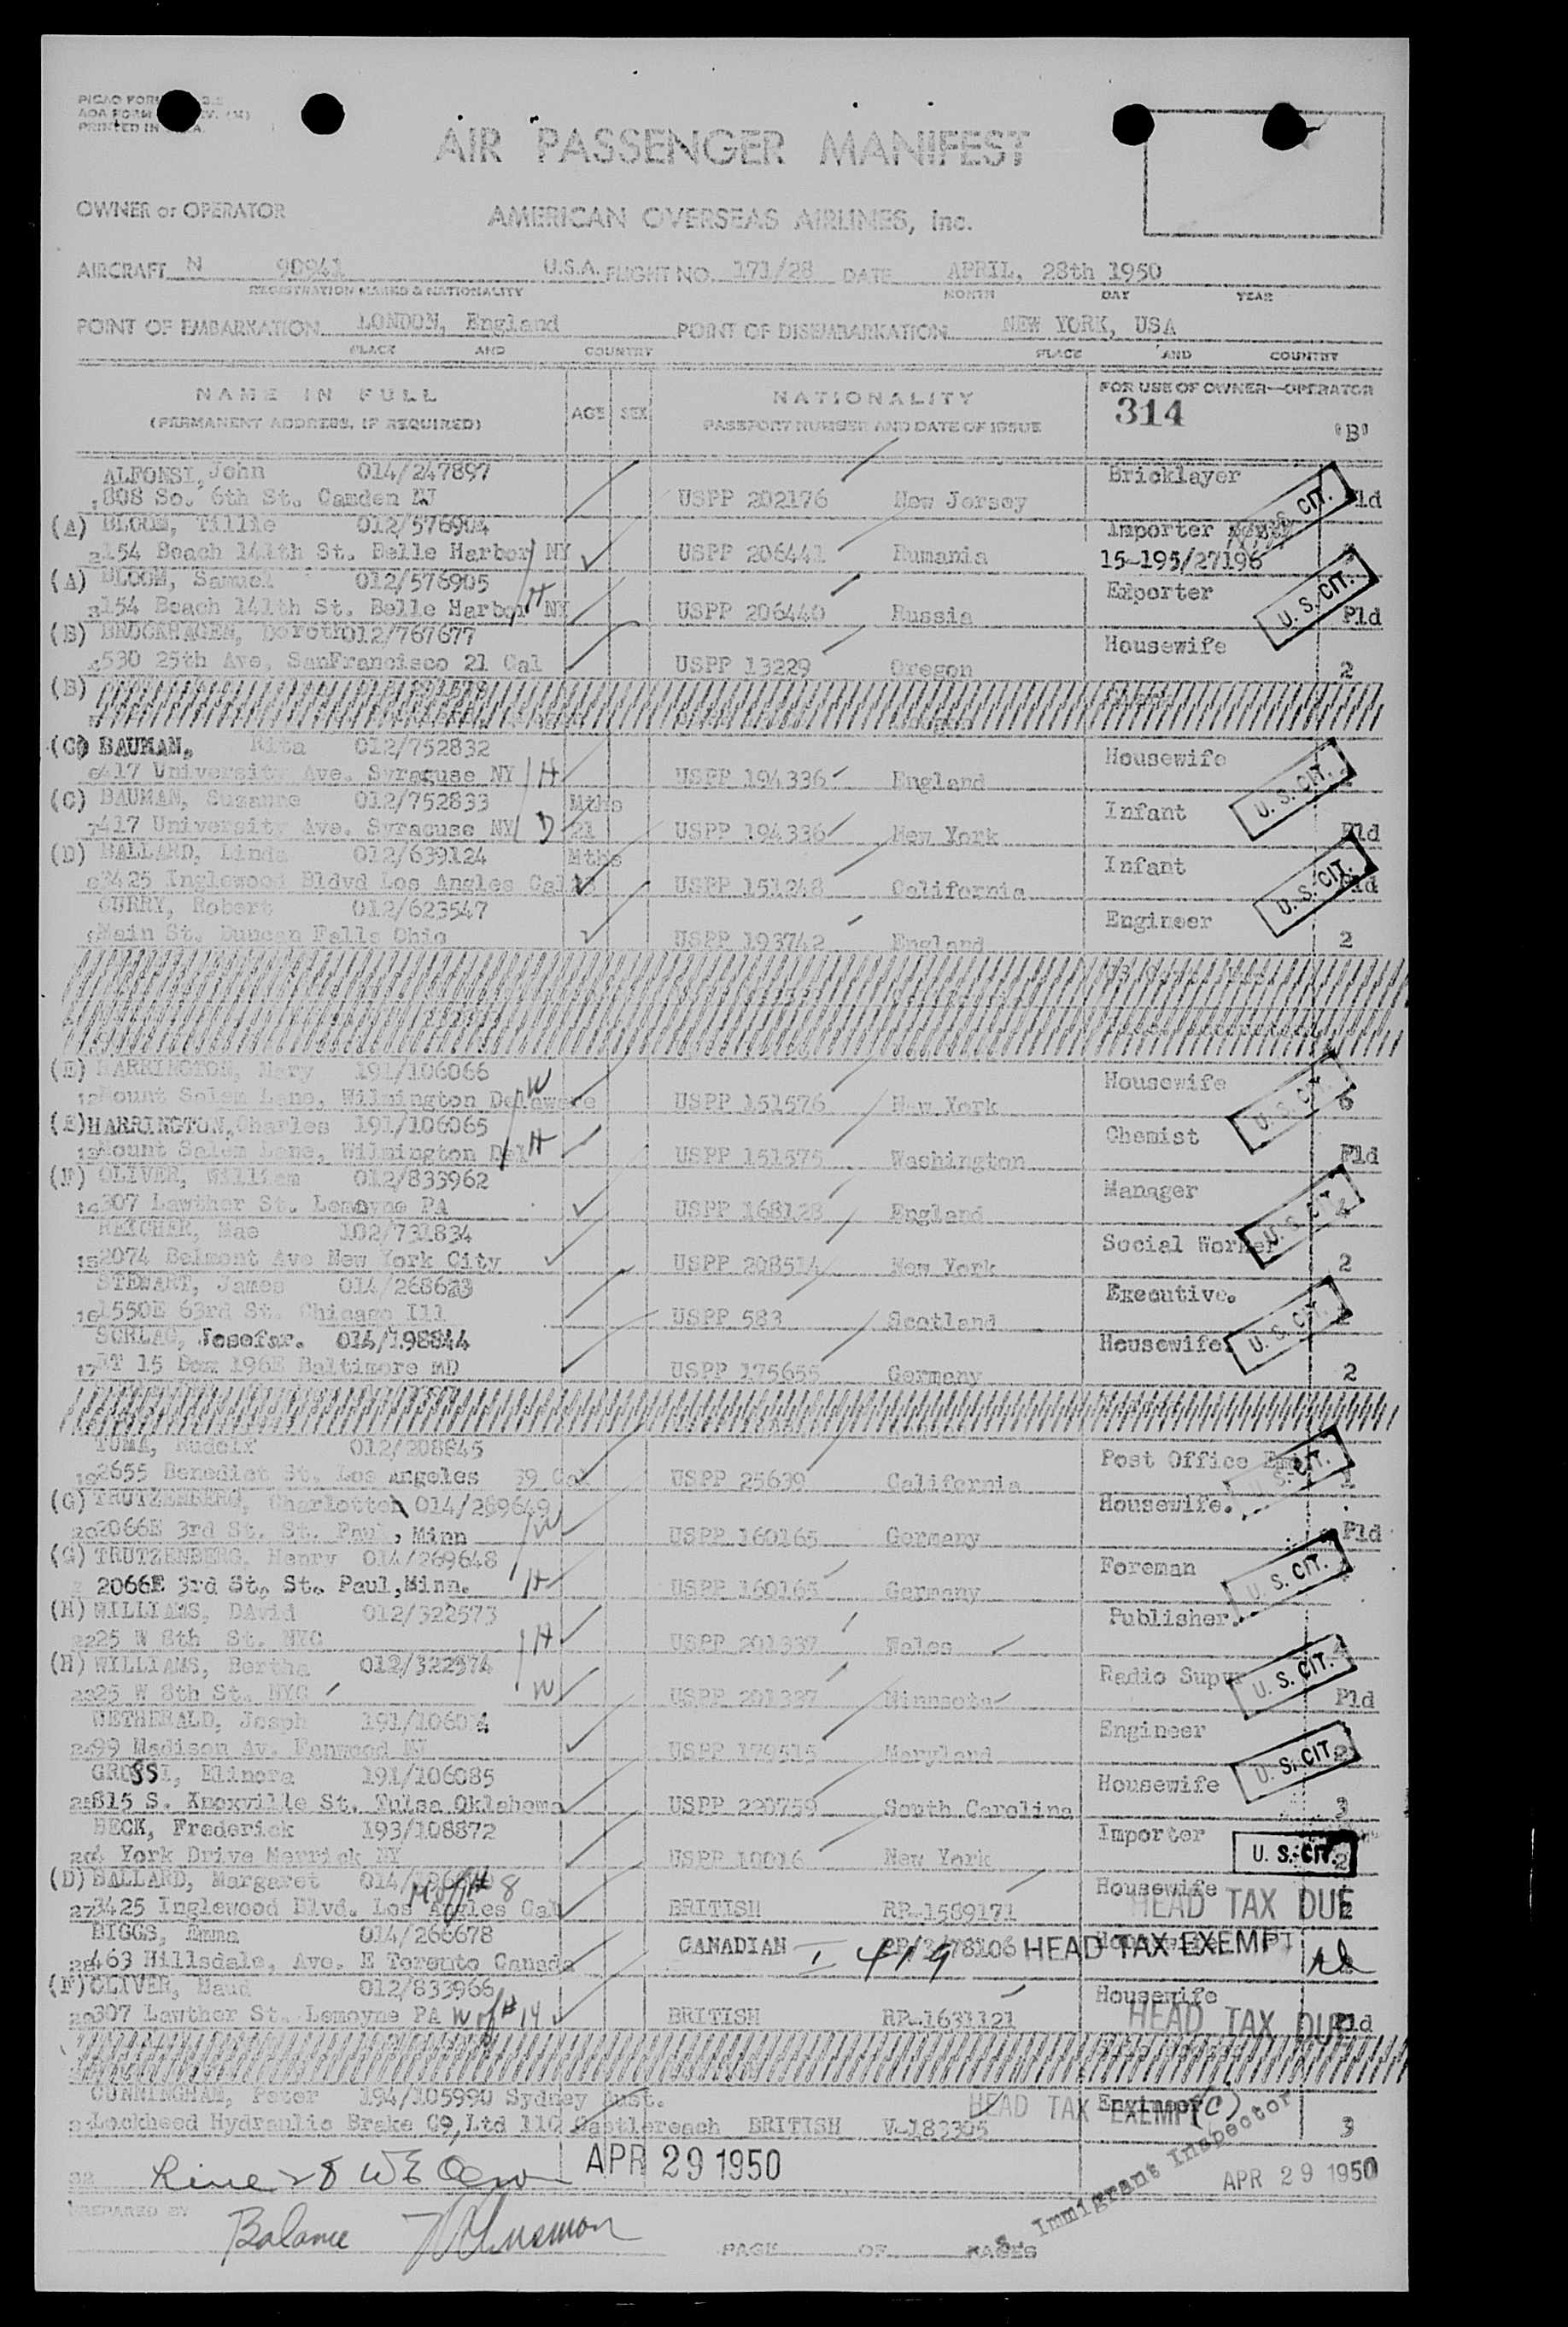 AIR PASSENGER MANIFEST
OWNER or OPERATOR AMERICAN OVERSEAS AIRLINES, Inc.
AIRCRAFT N 90941 U.S.A. FLIGHT NO. 171/28 DATE APRIL, 28th 1950
REGISTRATION MARKS & NATIONALITY MONTH DAY YEAR
POINT OF EMBARKATION LONDON, England POINT OF DISEMBARKATION NEW YORK, USA
PLACE AND COUNTRY PLACE AND COUNTRY
NAME IN FULL AGE SEX NATIONALITY FOR USE OF OWNER—OPERATOR
(PERMANENT ADDRESS, IF REQUIRED) PASSPORT NUMBER AND DATE OF ISSUE 314 "B"
ALFONSI, John 014/247897 Bricklayer
808 So. 6th St. Camden NJ USPP 202176 New Jersey Pld
(A) BLOOM, Tillie 012/576904 Importer U. S. CIT.
2 154 Beach 141th St. Belle Harbor NY USPP 206441 Rumania 15-195/27196
(A) BLOOM, Samuel 012/576905 Exporter
3 154 Beach 141th St. Belle Harbor NY H USPP 206440 Russia U. S. CIT. Pld
(B) BROCKHAGEN, Doroth 012/767677 Housewife
4 530 25th Ave, SanFrancisco 21 Cal USPP 13229 Oregon 2
(B)
(C) BAUMAN, Rita 012/752832 Housewife
6 417 University Ave. Syracuse NY H USPP 194336 England U. S. CIT.
(C) BAUMAN, Suzanne 012/752833 Mths Infant
7 417 University Ave. Syracuse NY D 21 USPP 194336 New York Pld
(D) BALLARD, Linda 012/639124 Mths Infant
8 3425 Inglewood Bldvd Los Angles Cal USPP 151248 California U. S. CIT. Pld
CURRY, Robert 012/623547 Engineer
9 Main St. Duncan Falls Ohio USPP 193742 England 2
(E) HARRINGTON, Mary 191/106066 Housewife
12 Mount Salem Lane, Wilmington Delaware W USPP 151576 New York U. S. CIT. 6
(E) HARRINGTON, Charles 191/106065 Chemist
13 Mount Salem Lane, Wilmington Del H USPP 151575 Washington Pld
(F) OLIVER, William 012/833962 Manager
14 307 Lawther St. Lemoyne PA USPP 168128 England U. S. CIT.
REICHER, Mae 102/731834 Social Worker
15 2074 Belmont Ave New York City USPP 208514 New York 2
STEWART, James 014/268623 Executive.
16 1550E 63rd St. Chicago Ill USPP 583 Scotland U. S. CIT.
Josefar. 014/198844 Housewife.
17 RT 15 Box 196E Baltimore MD USPP 175655 Germany 2
TOMA, Rudolf 012/208845 Post Office
19 2655 Benedict St. Los Angeles 39 Cal USPP 25639 California U. S. CIT.
(G) TRUTZENBERG, Charlotte 014/269649 Housewife.
20 2066E 3rd St. St. Paul, Minn W USPP 160165 Germany Pld
(G) TRUTZENBERG. Henry 014/269648 Foreman
2066E 3rd St. St. Paul, Minn. H USPP 160165 Germany U. S. CIT.
(H) WILLIAMS, DAvid 012/322573 Publisher.
22 25 W 8th St. NYC H USPP 201337 Wales 4
(H) WILLIAMS, Bertha 012/322574 Radio Supvr
23 25 W 8th St. NYC W USPP 201337 Minnsota U. S. CIT. Pld
WETHERALD, Josph Engineer
24 99 Madison Av. Fanwood NJ USPP 179515 Maryland U. S. CIT. 2
GROSSI, Elinora 191/106085 Housewife
25 815 S. Knoxville St. Tulsa Oklahoma USPP 220759 South Carolina 3
BECK, Frederick 193/108872 Importer
26 York Drive Merrick NY USPP 10016 New York U. S. CIT. 2
(D) BALLARD, Margaret Housewife
27 3425 Inglewood Blvd. Los Angles Cal BRITISH RP-1589171 HEAD TAX DUE
BIGGS, Emma 014/266678
28 463 Hillsdale, Ave. E Toronto Canada CANADIAN I 419 HEAD TAX EXEMPT
(F) OLIVER, Maud 012/833966 Housewife
29 307 Lawther St. Lemoyne PA W of # 14 BRITISH RP-1631121 HEAD TAX DUE Pld
CUNNINGHAM, Peter 194/105990 Sydney Aust. HEAD TAX EXEMPT (C) Engineer
Lockheed Hydraulic Brake Co, Ltd 110 Castlereach BRITISH V-182305 3
32 Line 28 APR 29 1950 Immigrant Inspector APR 29 1950
PREPARED BY Balance
PAGE OF PAGES